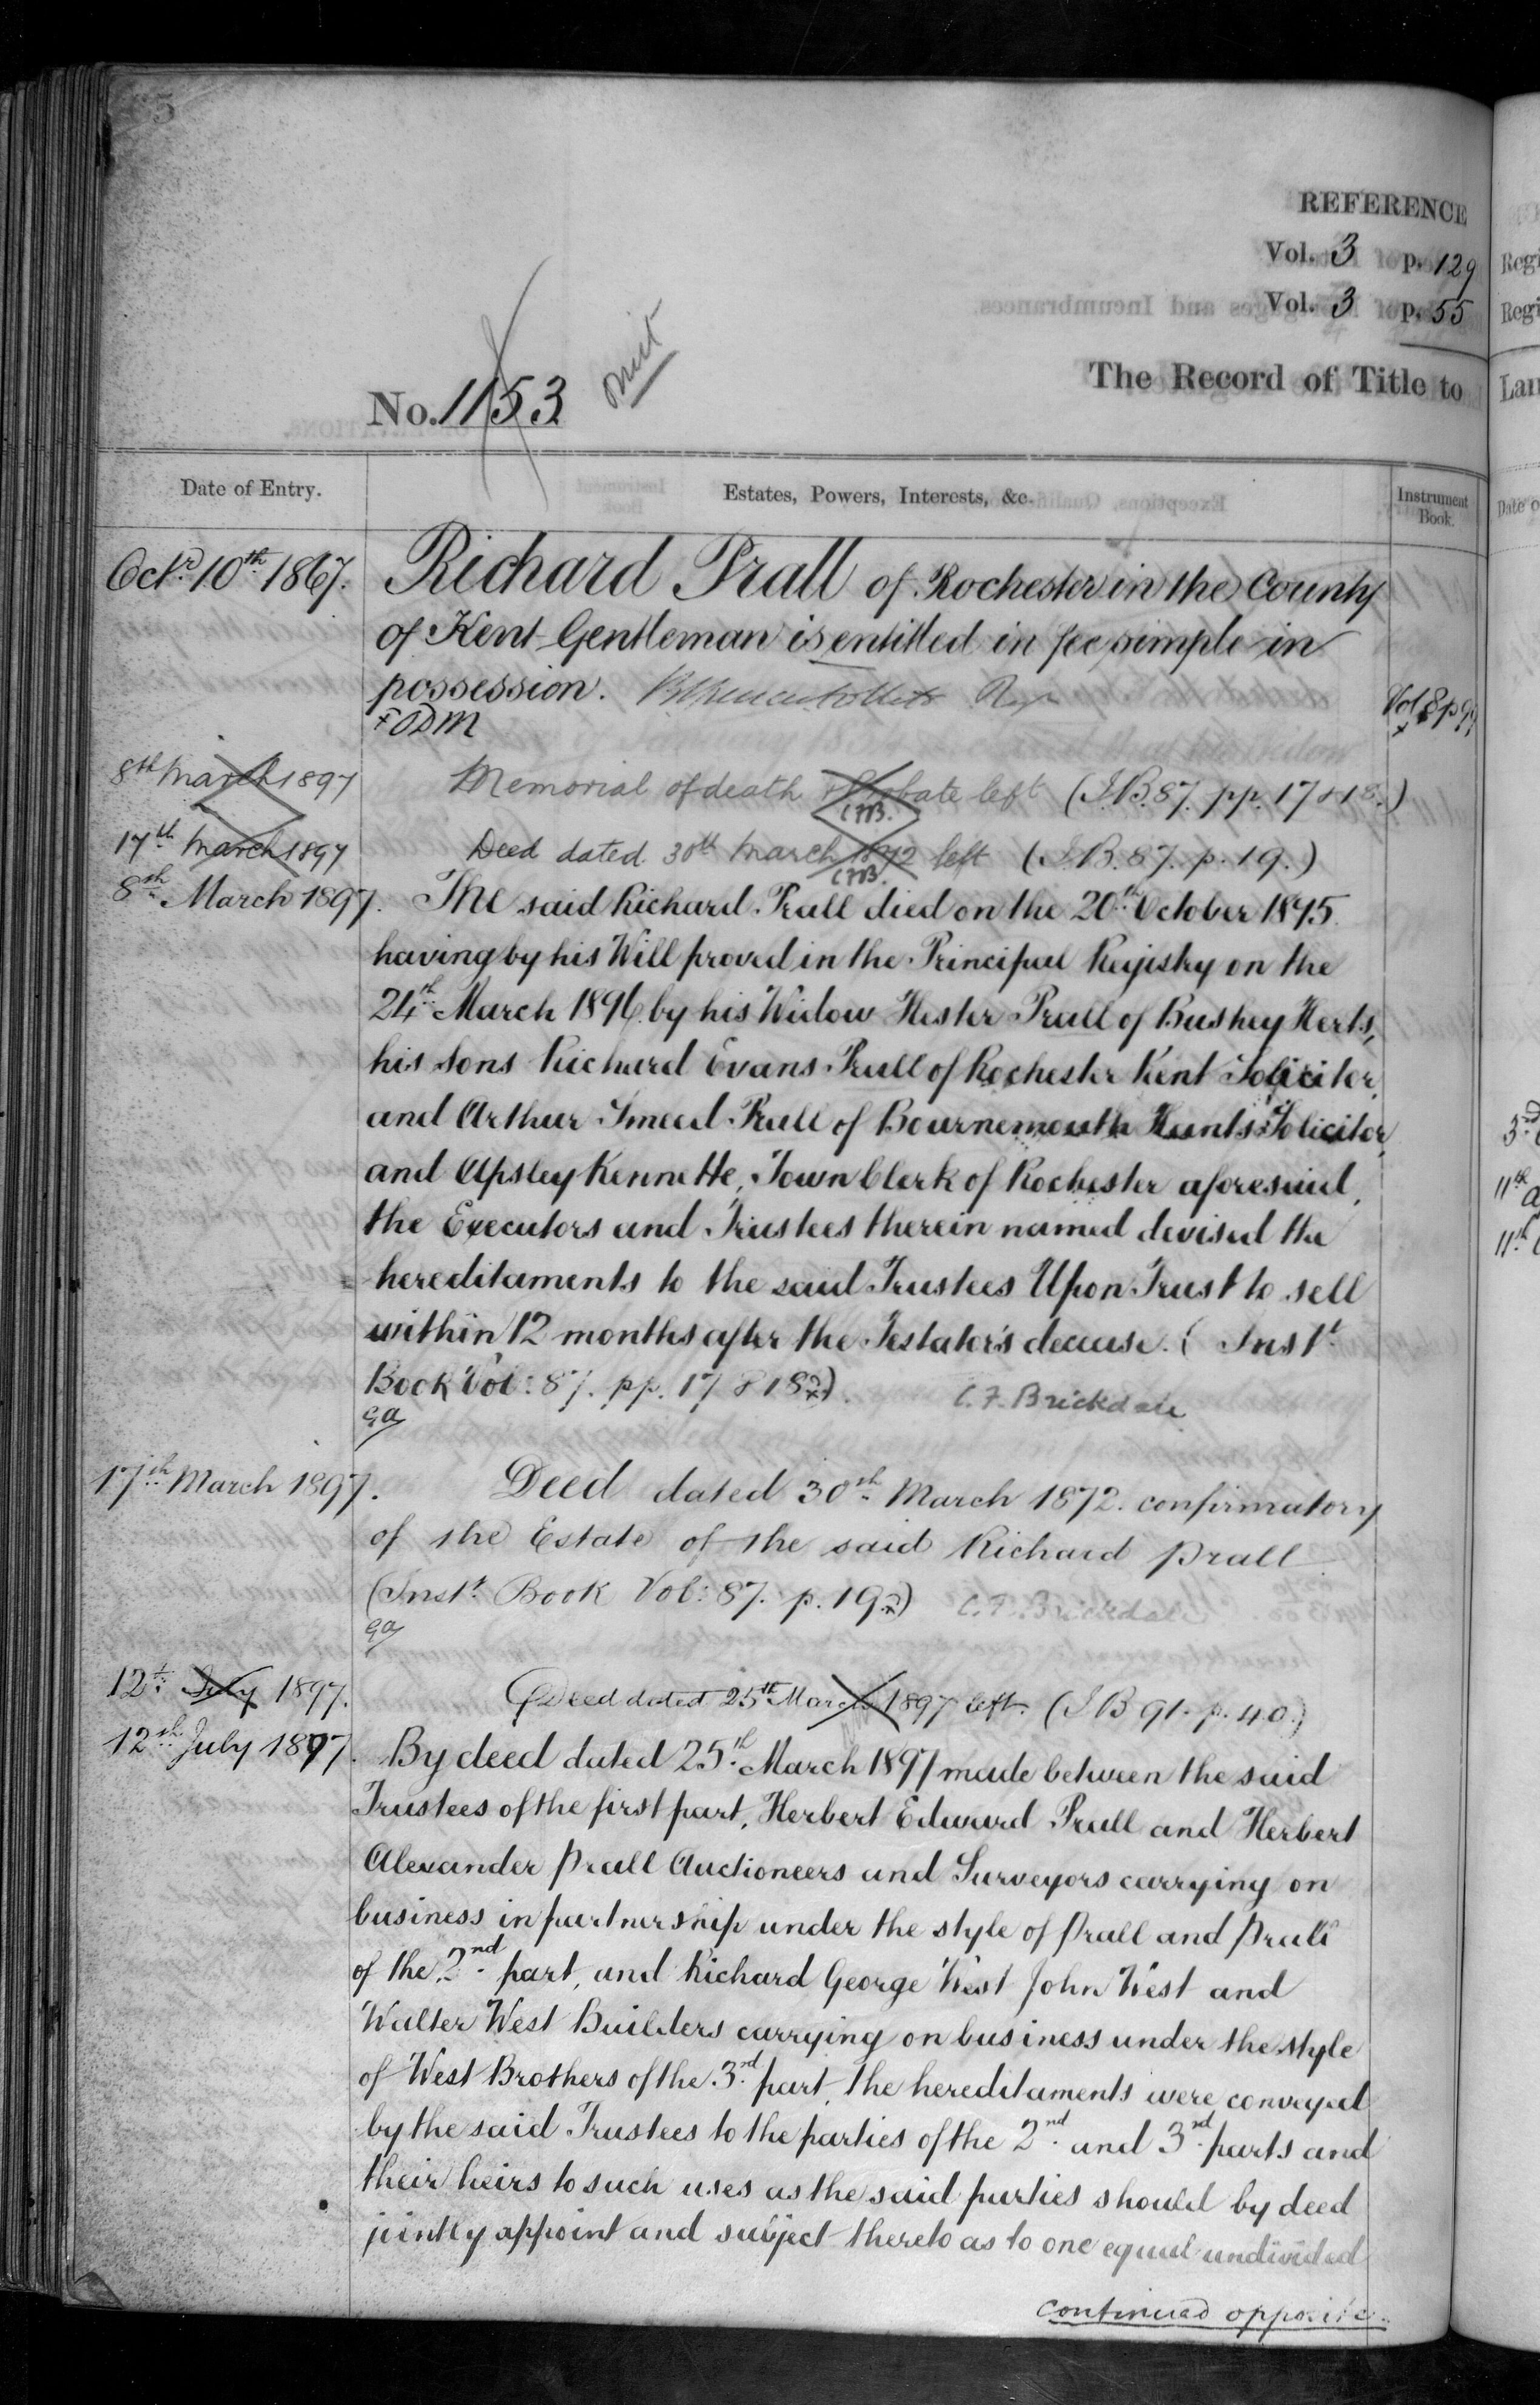 REFERENCE
Vol. 3 p. 129
Vol. 3 p. 55
The Record of Title to
No. 1153
omit
Date of Entry.
Estates, Powers, Interests, &c.
Instrument Book.
Octr. 10th. 1867. Richard Prall of Rochester in the County
of Kent Gentleman is entitled in fee simple in
possession.
Vol 8 p 99
+ ODM
8th March 1897 Memorial of death & Probate left (I.B. 87. pp. 17 & 18.)
CMB.
17th March 1897 Deed dated 30th March 1872 left (I.B. 87. p. 19.)
CMB.
8th. March 1897. The said Richard Prall died on the 20th. October 1895.
having by his Will proved in the Principal Registry on the
24th. March 1896 by his Widow Hester Prall of Bushey Herts,
his sons Richard Evans Prall of Rochester Kent Solicitor,
and Arthur Smeed Prall of Bournemouth Hants Solicitor,
and Apsley Kennette, Town Clerk of Rochester aforesaid,
the Executors and Trustees therein named devised the
hereditaments to the said Trustees Upon Trust to sell
within 12 months after the Testator's decease. (Instt.
Book Vol: 87. pp. 17 & 18) C. F. Brickdale
ga
17th. March 1897. Deed dated 30th. March 1872. confirmatory
of the Estate of the said Richard Prall
(Instt. Book Vol: 87. p. 19) C. F. Brickdale
ga
12th. July 1897. Deed dated 25th March 1897 left. (I B 91. p. 40.)
12th. July 1897. By deed dated 25th. March 1897 made between the said
Trustees of the first part, Herbert Edward Prall and Herbert
Alexander Prall Auctioneers and Surveyors carrying on
business in partnership under the style of Prall and Prall
of the 2nd. part, and Richard George West John West and
Walter West Builders carrying on business under the style
of West Brothers of the 3rd. part, the hereditaments were conveyed
by the said Trustees to the parties of the 2nd. and 3rd. parts and
their heirs to such uses as the said parties should by deed
jointly appoint and subject thereto as to one equal undivided
continued opposite.